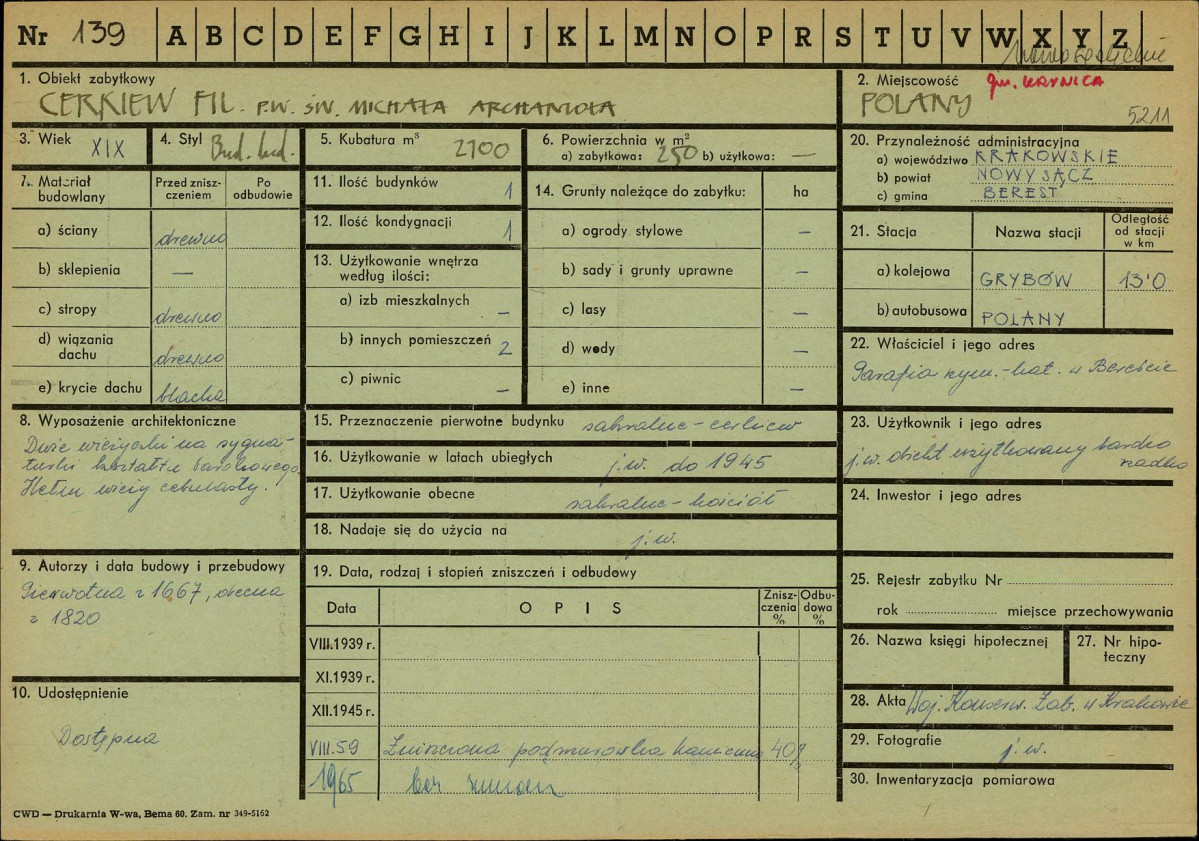 Nr 139 A B C D E F G H I J K L M N O P R S T U V W X Y Z
1. Obiekt zabytkowy
CERKIEW FIL. P.W. ŚW. MICHAŁA ARCHANIOŁA
2. Miejscowość gm. KRYNICA
POLANY
5211
3. Wiek XIX
4. Styl Bud. lud.
5. Kubatura m³ 2100
6. Powierzchnia w m³
a) zabytkowa: 250 b) użytkowa: —
20. Przynależność administracyjna
a) województwo KRAKOWSKIE
b) powiat NOWY SĄCZ
c) gmina BEREST
7. Materiał budowlany
Przed zniszczeniem
Po odbudowie
a) ściany drewno
b) sklepienia —
c) stropy drewno
d) wiązania dachu drewno
e) krycie dachu blacha
11. Ilość budynków 1
12. Ilość kondygnacji 1
13. Użytkowanie wnętrza według ilości:
a) izb mieszkalnych —
b) innych pomieszczeń 2
c) piwnic —
14. Grunty należące do zabytku: ha
a) ogrody stylowe —
b) sady i grunty uprawne —
c) lasy —
d) wody —
e) inne —
21. Stacja
Nazwa stacji
Odległość od stacji w km
a) kolejowa GRYBÓW 13'0
b) autobusowa POLANY
22. Właściciel i jego adres
Parafia rzym.-kat. w Bereście
8. Wyposażenie architektoniczne
Dwie wieżyczki na sygna-
turki kształtu barokowego.
Hełm wieży cebulasty.
15. Przeznaczenie pierwotne budynku sakralne - cerkiew
16. Użytkowanie w latach ubiegłych j.w. do 1945
17. Użytkowanie obecne sakralne - kościół
18. Nadaje się do użycia na j.w.
23. Użytkownik i jego adres
j.w. obiekt użytkowany bardzo
rzadko
24. Inwestor i jego adres
9. Autorzy i data budowy i przebudowy
Pierwotna z 1667, obecna
z 1820
19. Data, rodzaj i stopień zniszczeń i odbudowy
Data
OPIS
Zniszczenia %
Odbudowa %
VIII.1939 r.
XI.1939 r.
XII.1945 r.
VIII.59 Zniszczona podmurówka kamienna 40%
1965 bez zmian
25. Rejestr zabytku Nr
rok miejsce przechowywania
26. Nazwa księgi hipotecznej
27. Nr hipoteczny
10. Udostępnienie
Dostępna
28. Akta Woj. Konserw. Zab. w Krakowie
29. Fotografie j.w.
30. Inwentaryzacja pomiarowa
CWD — Drukarnia W-wa, Bema 60. Zam. nr 349-5162